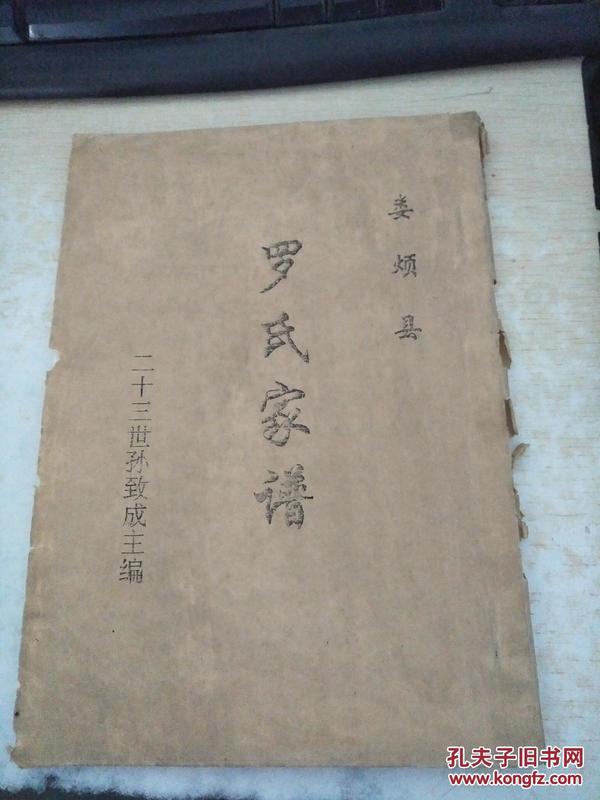 娄烦县
罗氏家谱
二十三世孙致成主编
孔夫子旧书网
www.kongfz.com